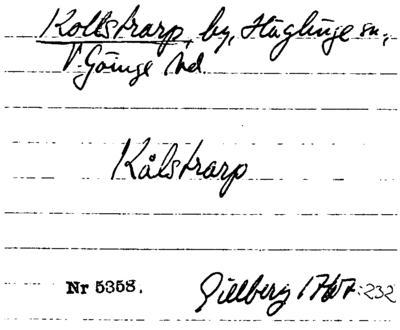 Kollstrarp, by, Häglinge sn,
V. Göinge hd.
Kålstrarp
Nr 5358. Gillberg 1767:232